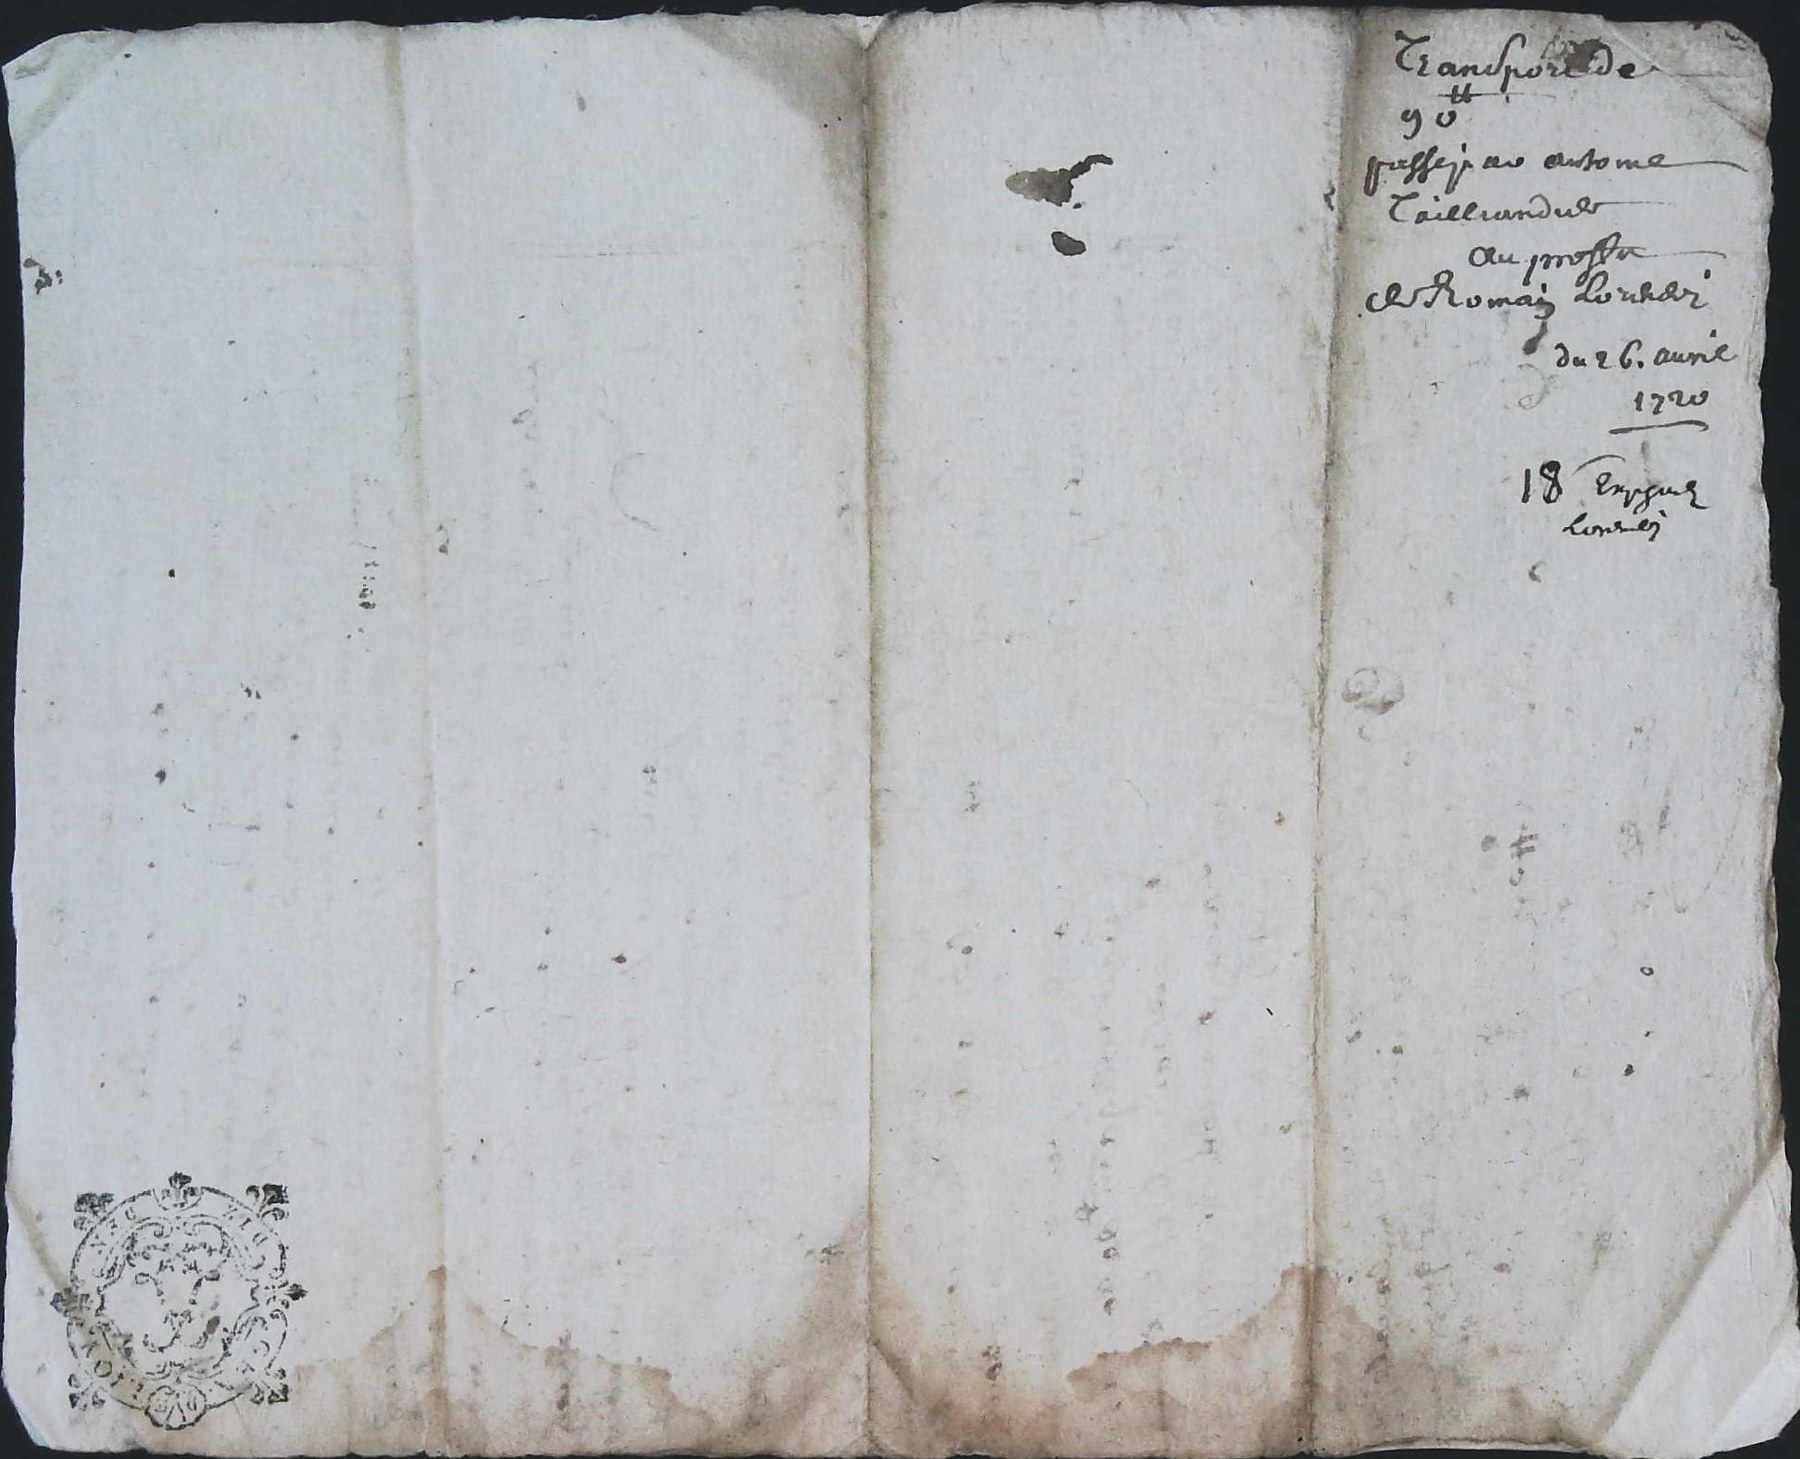 Transport de
90 ₶
passé par antoine
Tailliandier
au proffit
de Romain Lorendi
du 26. avril
1720
18